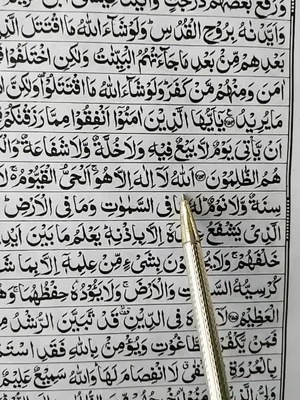 وَرَفَعَ بَعْضَهُمْ دَرَجٰتٍ
وَاَيَّدْنٰهُ بِرُوْحِ الْقُدُسِ وَلَوْ شَآءَ اللّٰهُ مَا اقْتَتَلَ الَّذِ
بَعْدِهِمْ مِّنْ بَعْدِ مَا جَآءَتْهُمُ الْبَيِّنٰتُ وَلٰكِنِ اخْتَلَفُوْا
اٰمَنَ وَمِنْهُمْ مَّنْ كَفَرَ وَلَوْ شَآءَ اللّٰهُ مَا اقْتَتَلُوْا وَلٰكِنَّ
مَا يُرِيْدُ يٰٓاَيُّهَا الَّذِيْنَ اٰمَنُوْٓا اَنْفِقُوْا مِمَّا رَزَقْنٰكُمْ
اَنْ يَّاْتِيَ يَوْمٌ لَّا بَيْعٌ فِيْهِ وَلَا خُلَّةٌ وَّلَا شَفَاعَةٌ
هُمُ الظّٰلِمُوْنَ اَللّٰهُ لَآ اِلٰهَ اِلَّا هُوَ اَلْحَيُّ الْقَيُّوْمُ
سِنَةٌ وَّلَا نَوْمٌ لَهٗ فِي السَّمٰوٰتِ وَمَا فِي الْاَرْضِ
الَّذِيْ يَشْفَعُ اِلَّا بِاِذْنِهٖ يَعْلَمُ مَا بَيْنَ
خَلْفَهُمْ وَلَا بِشَيْءٍ مِّنْ عِلْمِهٖٓ اِلَّا بِمَا
كُرْسِيُّهُ وَالْاَرْضَ وَلَا يَـُٔوْدُهٗ حِفْظُهُمَا
الْعَظِيْمُ فِي الدِّيْنِ قَدْ تَّبَيَّنَ الرُّشْدُ
فَمَنْ يَّكْفُرْ وَيُؤْمِنْ بِاللّٰهِ فَقَدِ
بِالْعُرْوَةِ لَا انْفِصَامَ لَهَا وَاللّٰهُ سَمِيْعٌ عَلِيْمٌ